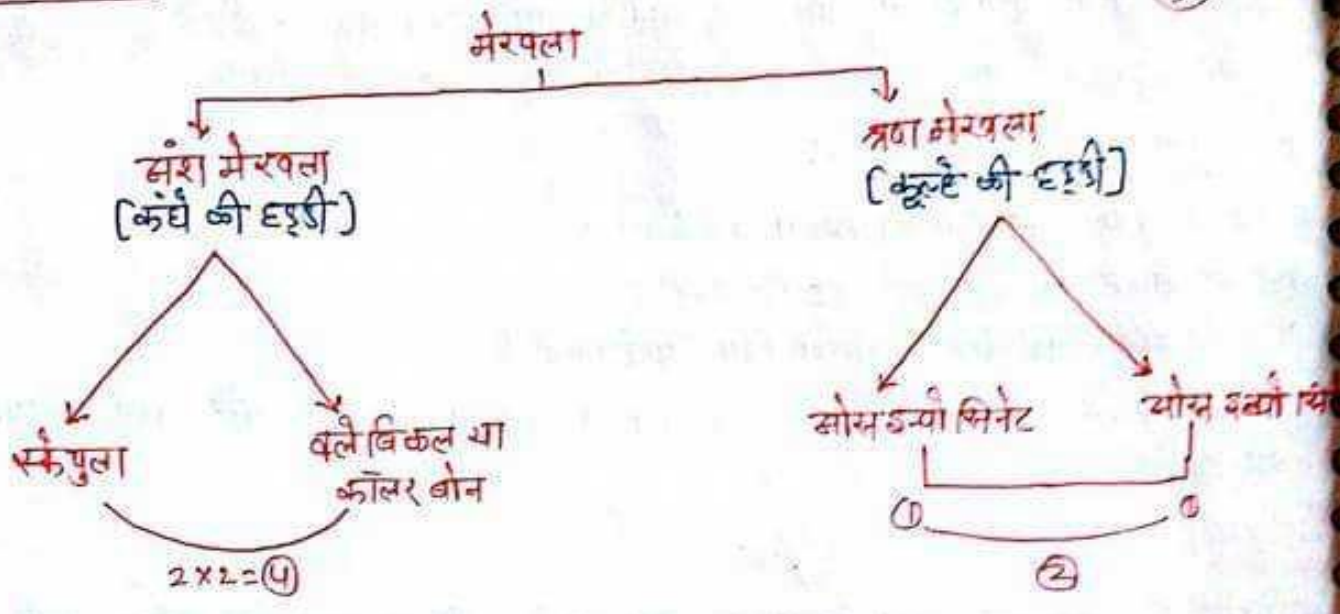 मेखला
अंश मेखला
[कंधे की हड्डी]
श्रेणी मेखला
[कूल्हे की हड्डी]
स्केपुला
क्लेविकल या
कॉलर बोन
2x2=④
ओस इन्नोमिनेट
①
①
②